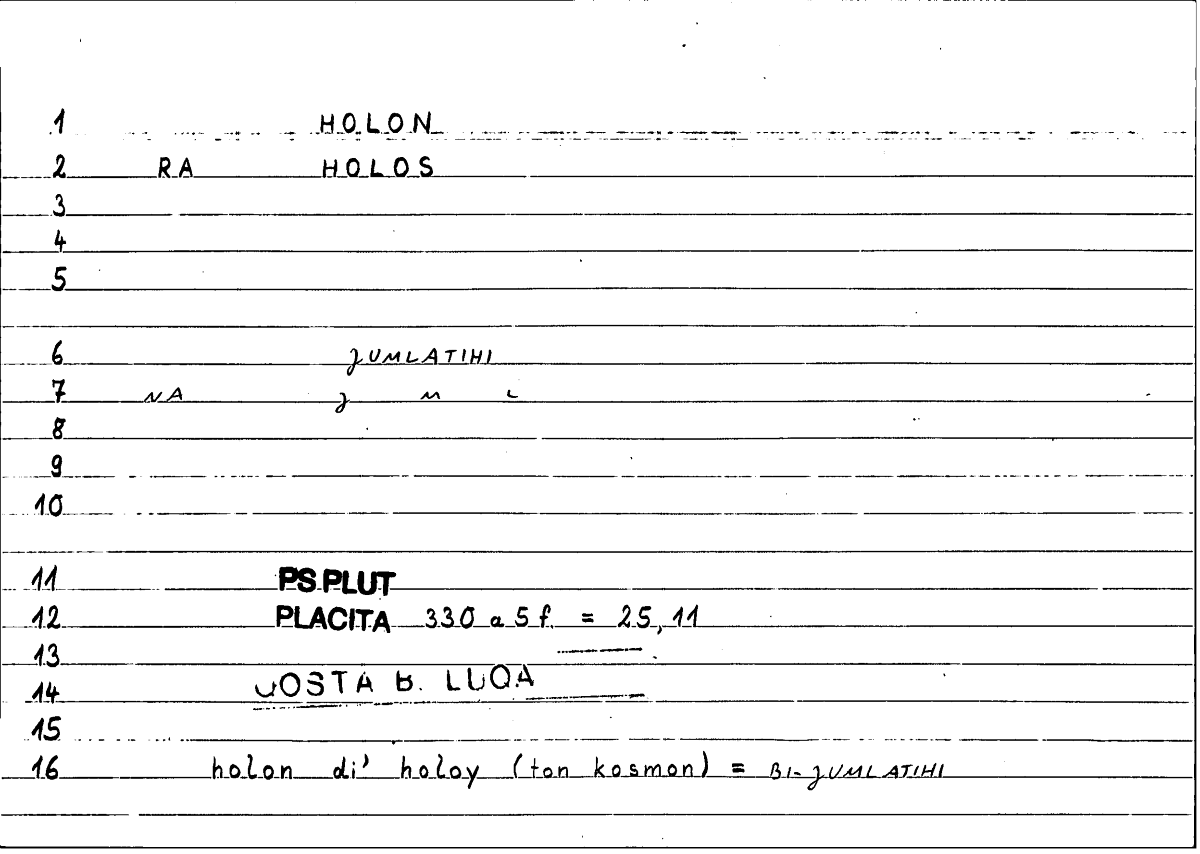 1 HOLON
2 RA HOLOS
3
4
5
6 JUMLATIHI
7 NA J M L
8
9
10
11 PS.PLUT
12 PLACITA 330 a 5 f. = 25,11
13
14 QOSTA B. LUQA
15
16 holon di' holoy (ton kosmon) = BI-JUMLATIHI